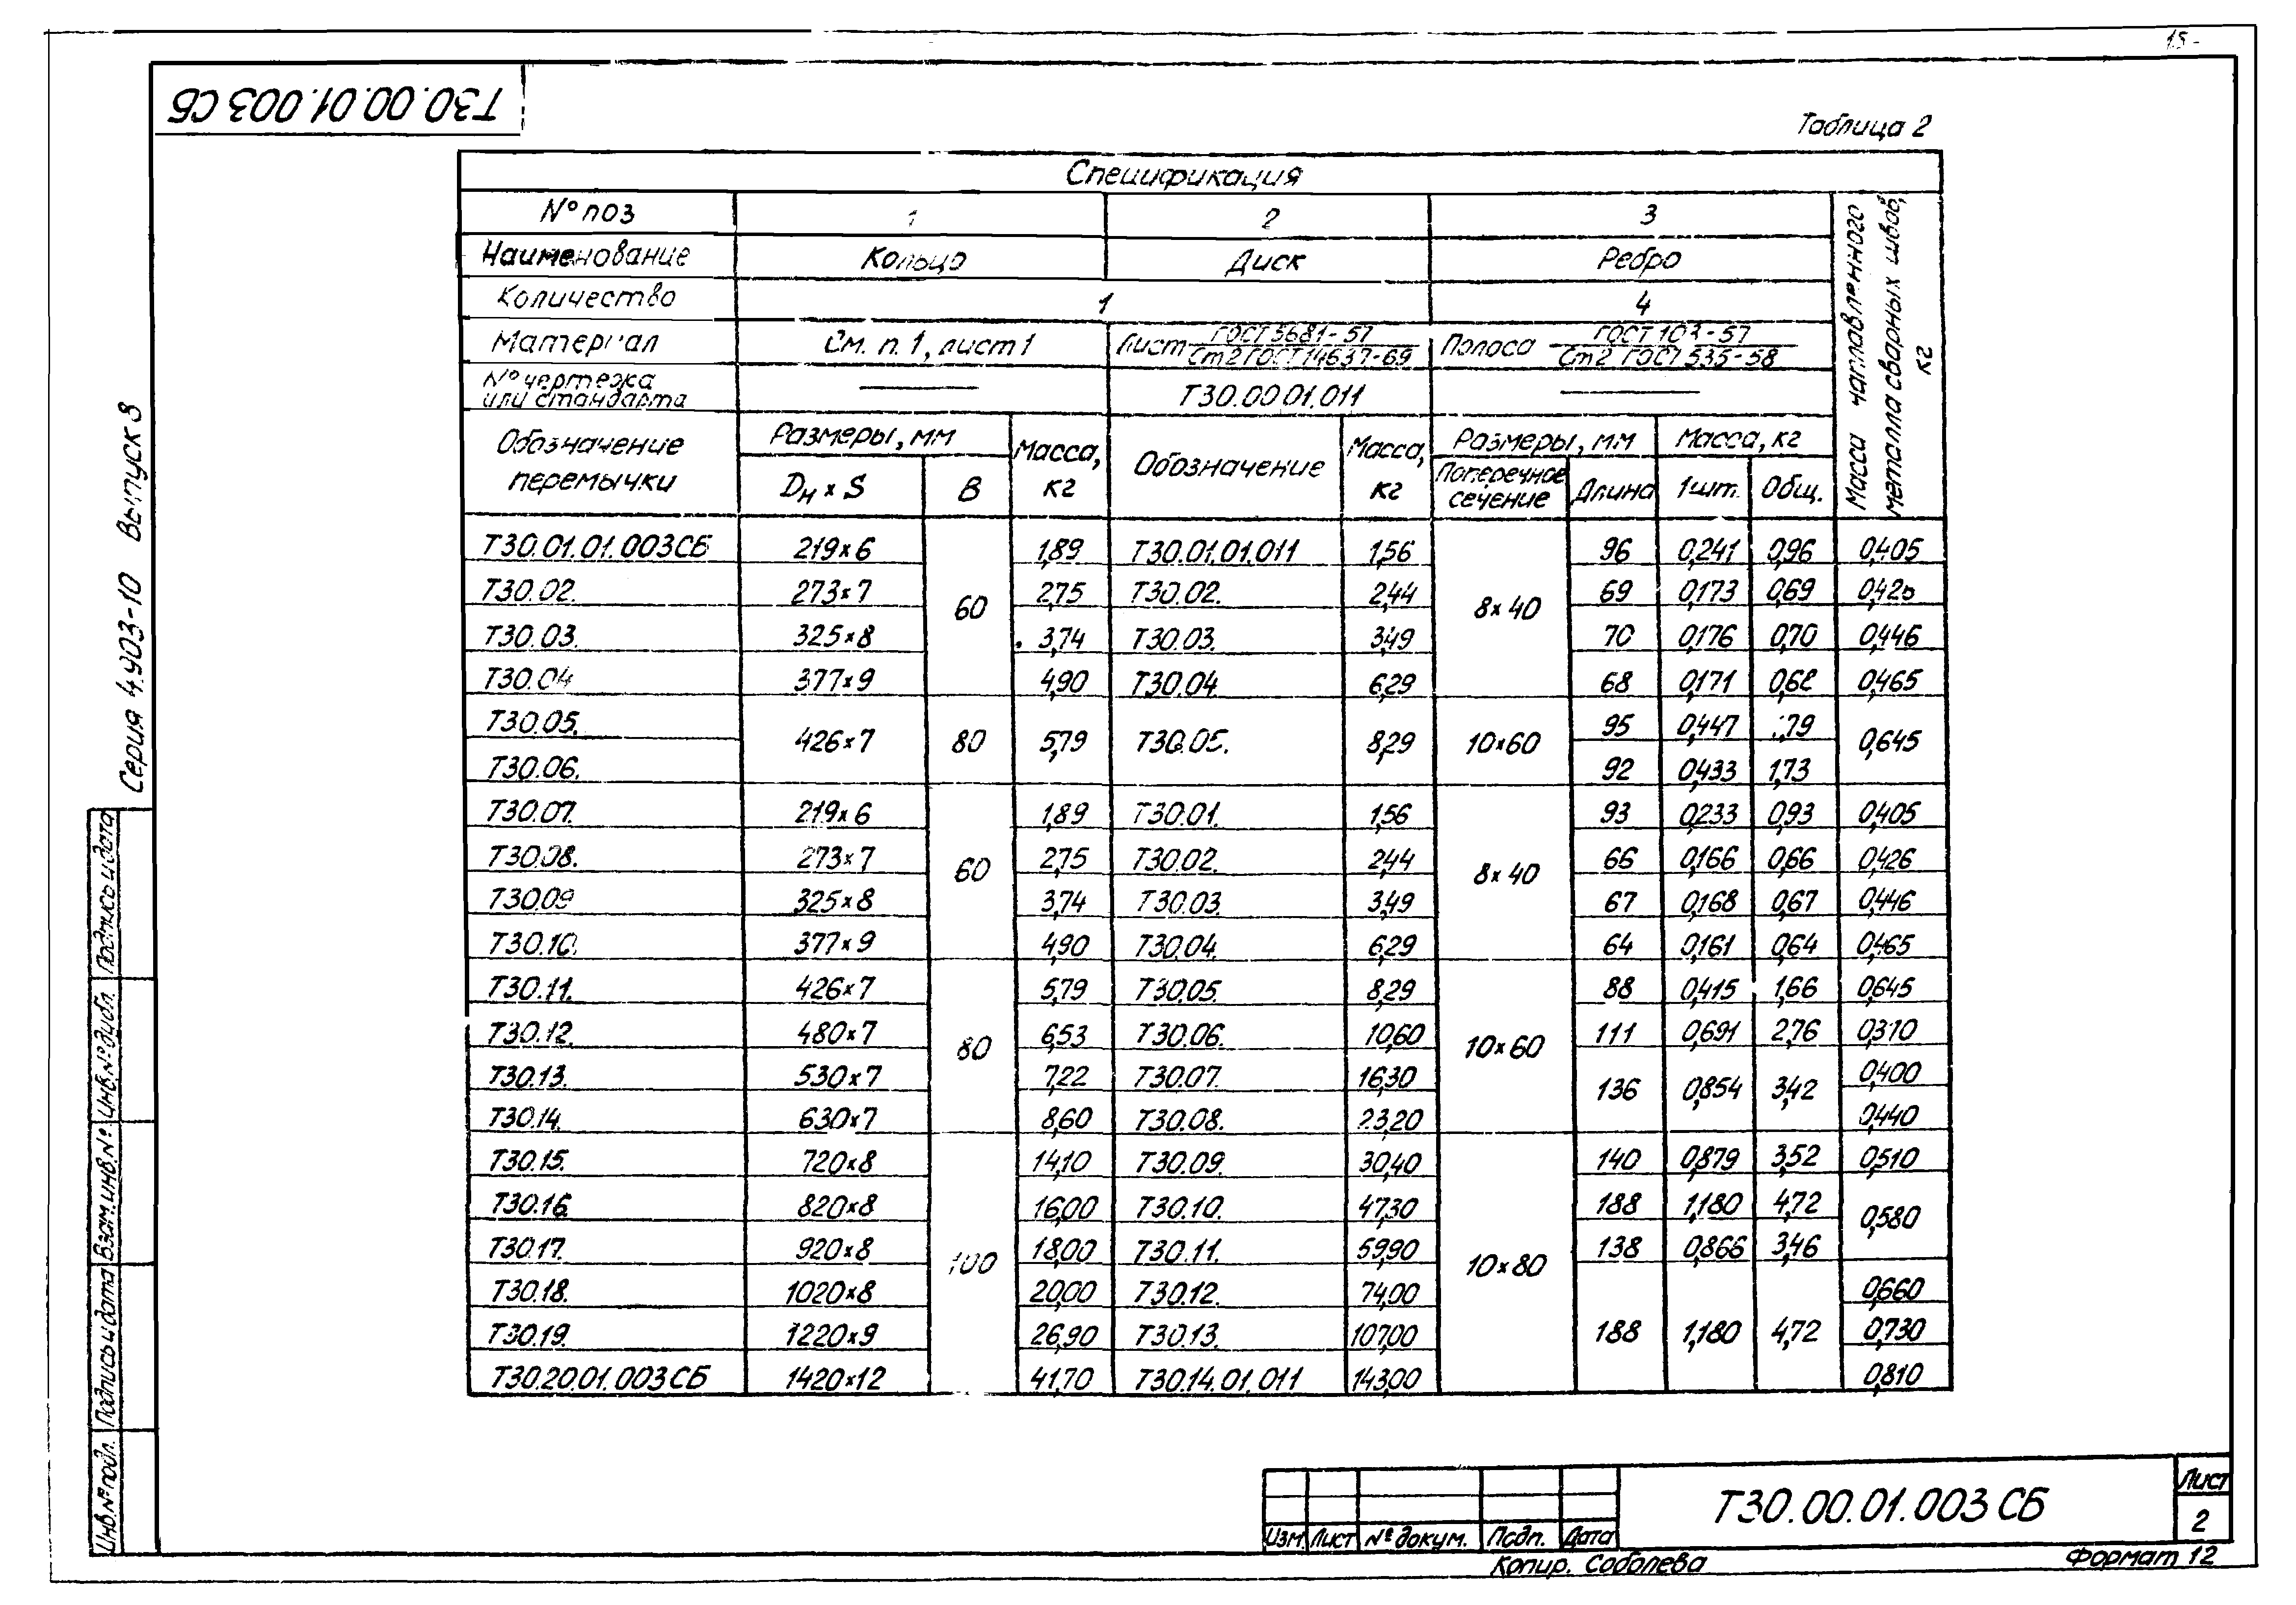 15
Т30.00.01.003 СБ
Таблица 2
Серия 4.903-10 Выпуск 8
Спецификация
N° поз 1 2 3
Наименование Кольцо Диск Ребро
Количество 1 4
Материал См. п. 1, лист 1 Лист ГОСТ 5681-57 / Ст2 ГОСТ 14637-69 Полоса ГОСТ 103-57 / Ст2 ГОСТ 535-58
N° чертежа или стандарта — Т30.00.01.011 —
Обозначение перемычки Размеры, мм Масса, кг Обозначение Масса, кг Размеры, мм Масса, кг Масса наплавленного металла сварных швов, кг
Dн x S В Поперечное сечение Длина 1 шт. Общ.
Т30.01.01.003СБ 219x6 60 1,89 Т30.01.01.011 1,56 8x40 96 0,241 0,96 0,405
Т30.02. 273x7 2,75 Т30.02. 2,44 69 0,173 0,69
Т30.03. 325x8 3,74 Т30.03. 3,49 70 0,176 0,70 0,446
Т30.04 377x9 4,90 Т30.04. 6,29 68 0,171 0,68 0,465
Т30.05. 426x7 80 5,79 Т30.05. 8,29 10x60 95 0,447 0,645
Т30.06. 92 0,433 1,73
Т30.07. 219x6 60 1,89 Т30.01. 1,56 8x40 93 0,233 0,93 0,405
Т30.08. 273x7 2,75 Т30.02. 2,44 66 0,166 0,66 0,426
Т30.09 325x8 3,74 Т30.03. 3,49 67 0,168 0,67 0,446
Т30.10. 377x9 4,90 Т30.04. 6,29 64 0,161 0,64 0,465
Т30.11. 426x7 80 5,79 Т30.05. 8,29 10x60 88 0,415 1,66 0,645
Т30.12. 480x7 6,53 Т30.06. 10,60 111 0,691 2,76 0,370
Т30.13. 530x7 7,22 Т30.07. 16,30 136 0,854 3,42 0,400
Т30.14. 630x7 8,60 Т30.08. 23,20 0,440
Т30.15. 720x8 100 14,10 Т30.09. 30,40 10x80 140 0,879 3,52 0,510
Т30.16. 820x8 16,00 Т30.10. 47,30 188 1,180 4,72 0,580
Т30.17. 920x8 18,00 Т30.11. 59,90 138 0,866 3,46
Т30.18. 1020x8 20,00 Т30.12. 74,00 188 1,180 4,72 0,660
Т30.19. 1220x9 26,90 Т30.13. 107,00 0,730
Т30.20.01.003СБ 1420x12 41,70 Т30.14.01.011 143,00 0,810
Инв. № подл. Подпись и дата Взам. инв. № Инв. № дубл. Подпись и дата
Изм Лист № докум. Подп. Дата
Т30.00.01.003 СБ
Лист
2
Копир. Соболева
Формат 12